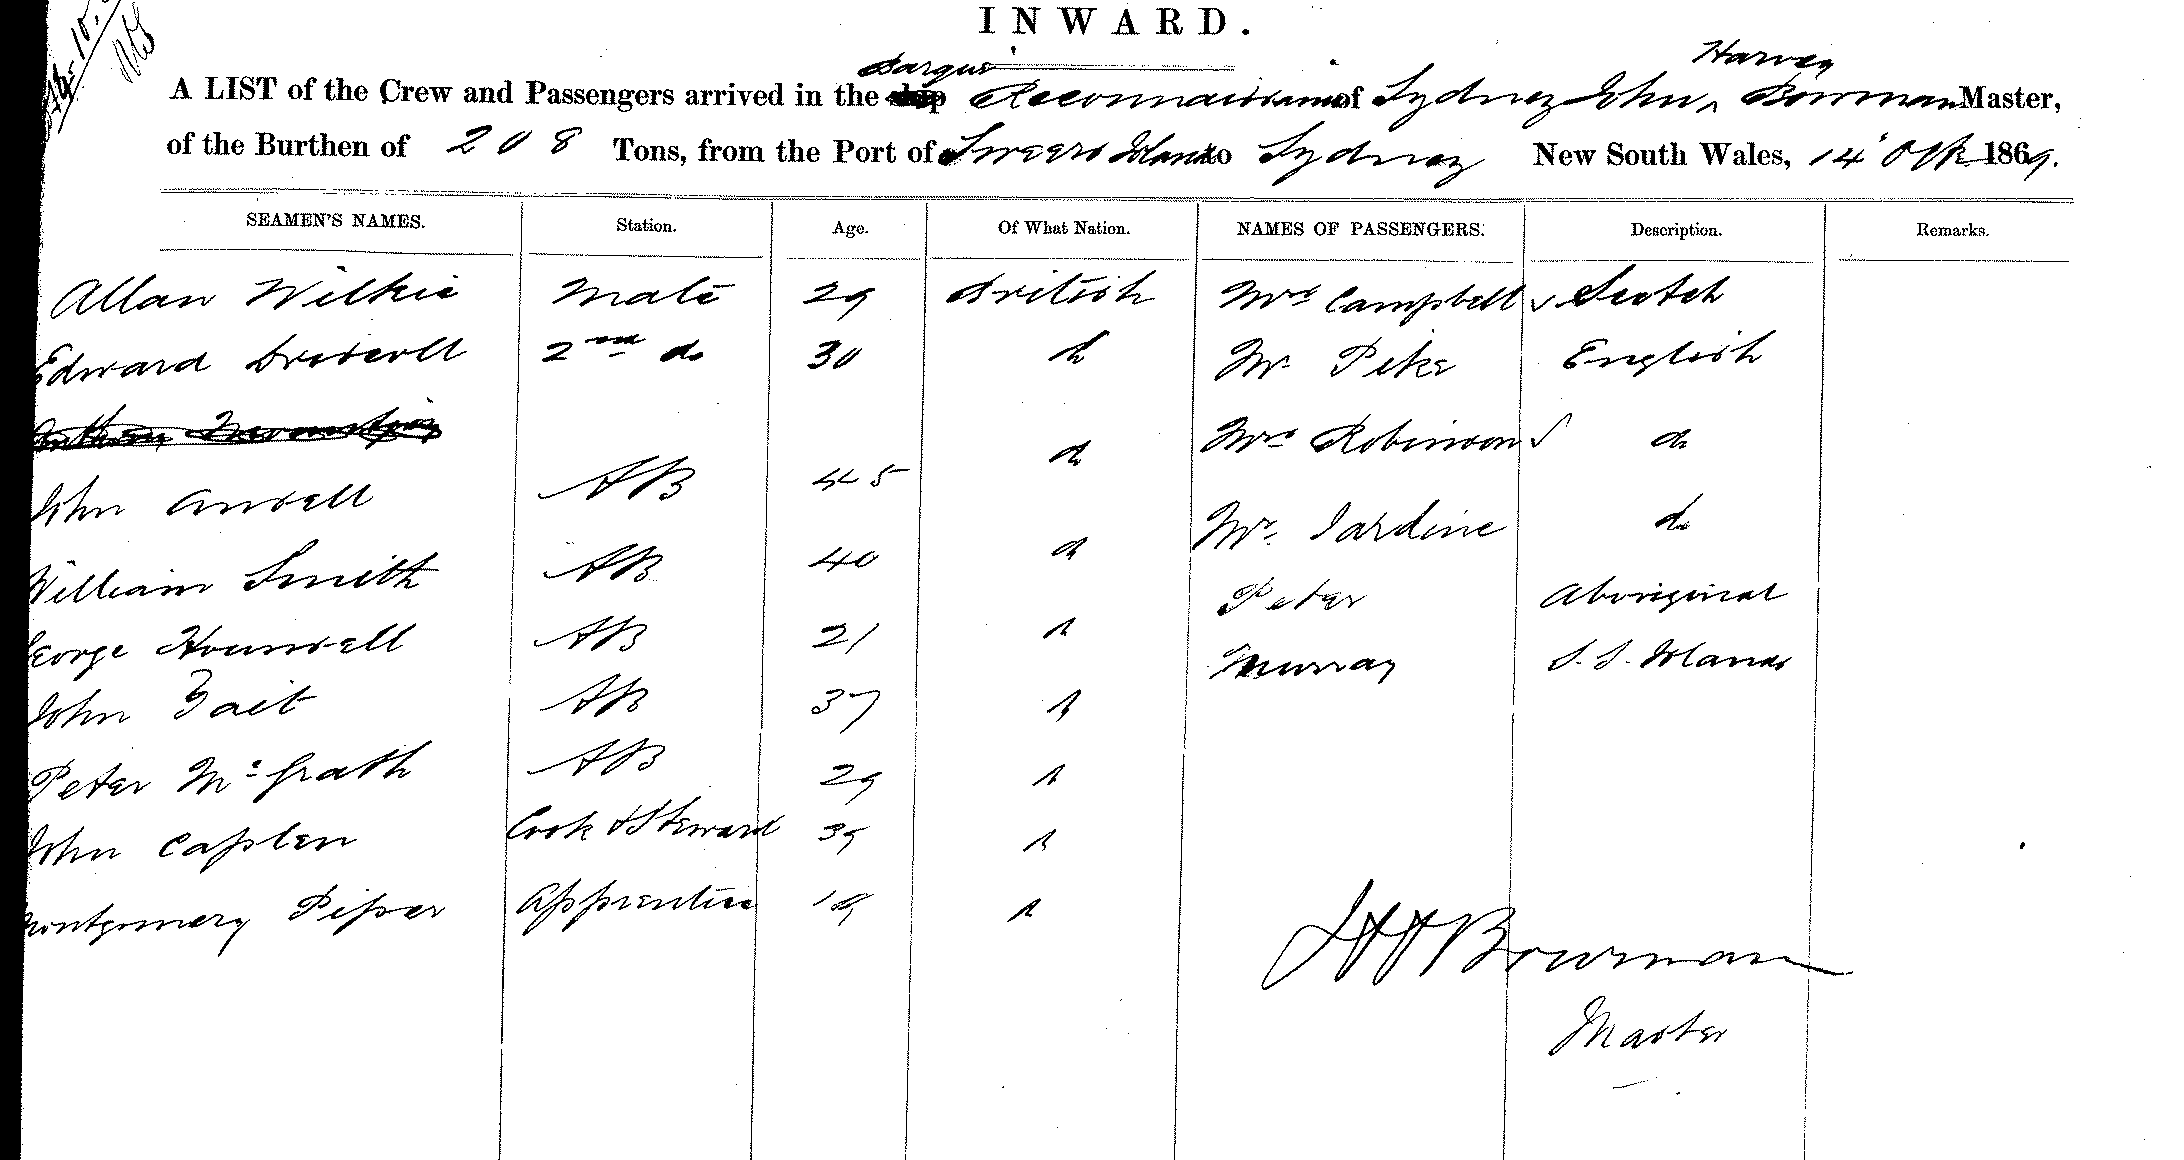 INWARD.
Barque Harvey
A LIST of the Crew and Passengers arrived in the ship Reconnaissance of Sydney John Bowman Master,
of the Burthen of 208 Tons, from the Port of Sweers Island to Sydney New South Wales, 14 Oct 1869.
SEAMEN'S NAMES. Station. Age. Of What Nation. NAMES OF PASSENGERS. Description. Remarks.
Allan Wilkie Mate 29 British Mrs Campbell Scotch
Edward Driscoll 2nd do 30 do Mr Pike English
Mrs Robinson do
John Ansell AB 45 do Mr Jardine do
William Smith AB 40 do Peter Aboriginal
George Hounsell AB 21 do Murray S. S. Islands
John Tait AB 37 do
Peter McGrath AB 29 do
John Caplen Cook & Steward 39 do
Montgomery Piper Apprentice 19 do
JHBowman
Master